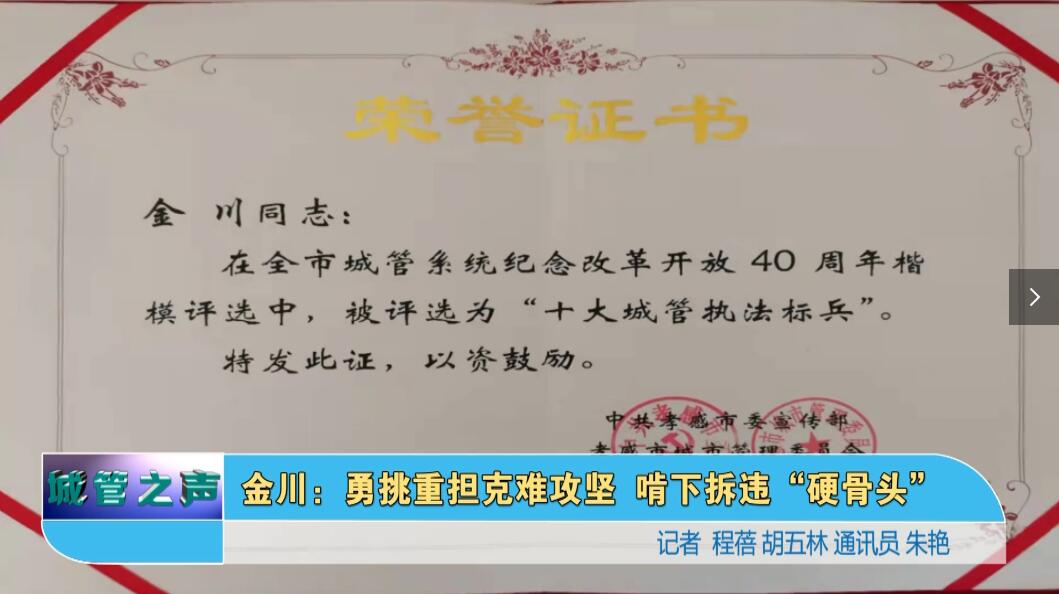 荣誉证书
金 川同志：
在全市城管系统纪念改革开放 40 周年楷
模评选中，被评选为“十大城管执法标兵”。
特发此证，以资鼓励。
中共孝感市委宣传部
孝感市城市管理委员会
城管之声
金川：勇挑重担克难攻坚 啃下拆违“硬骨头”
记者 程蓓 胡五林 通讯员 朱艳